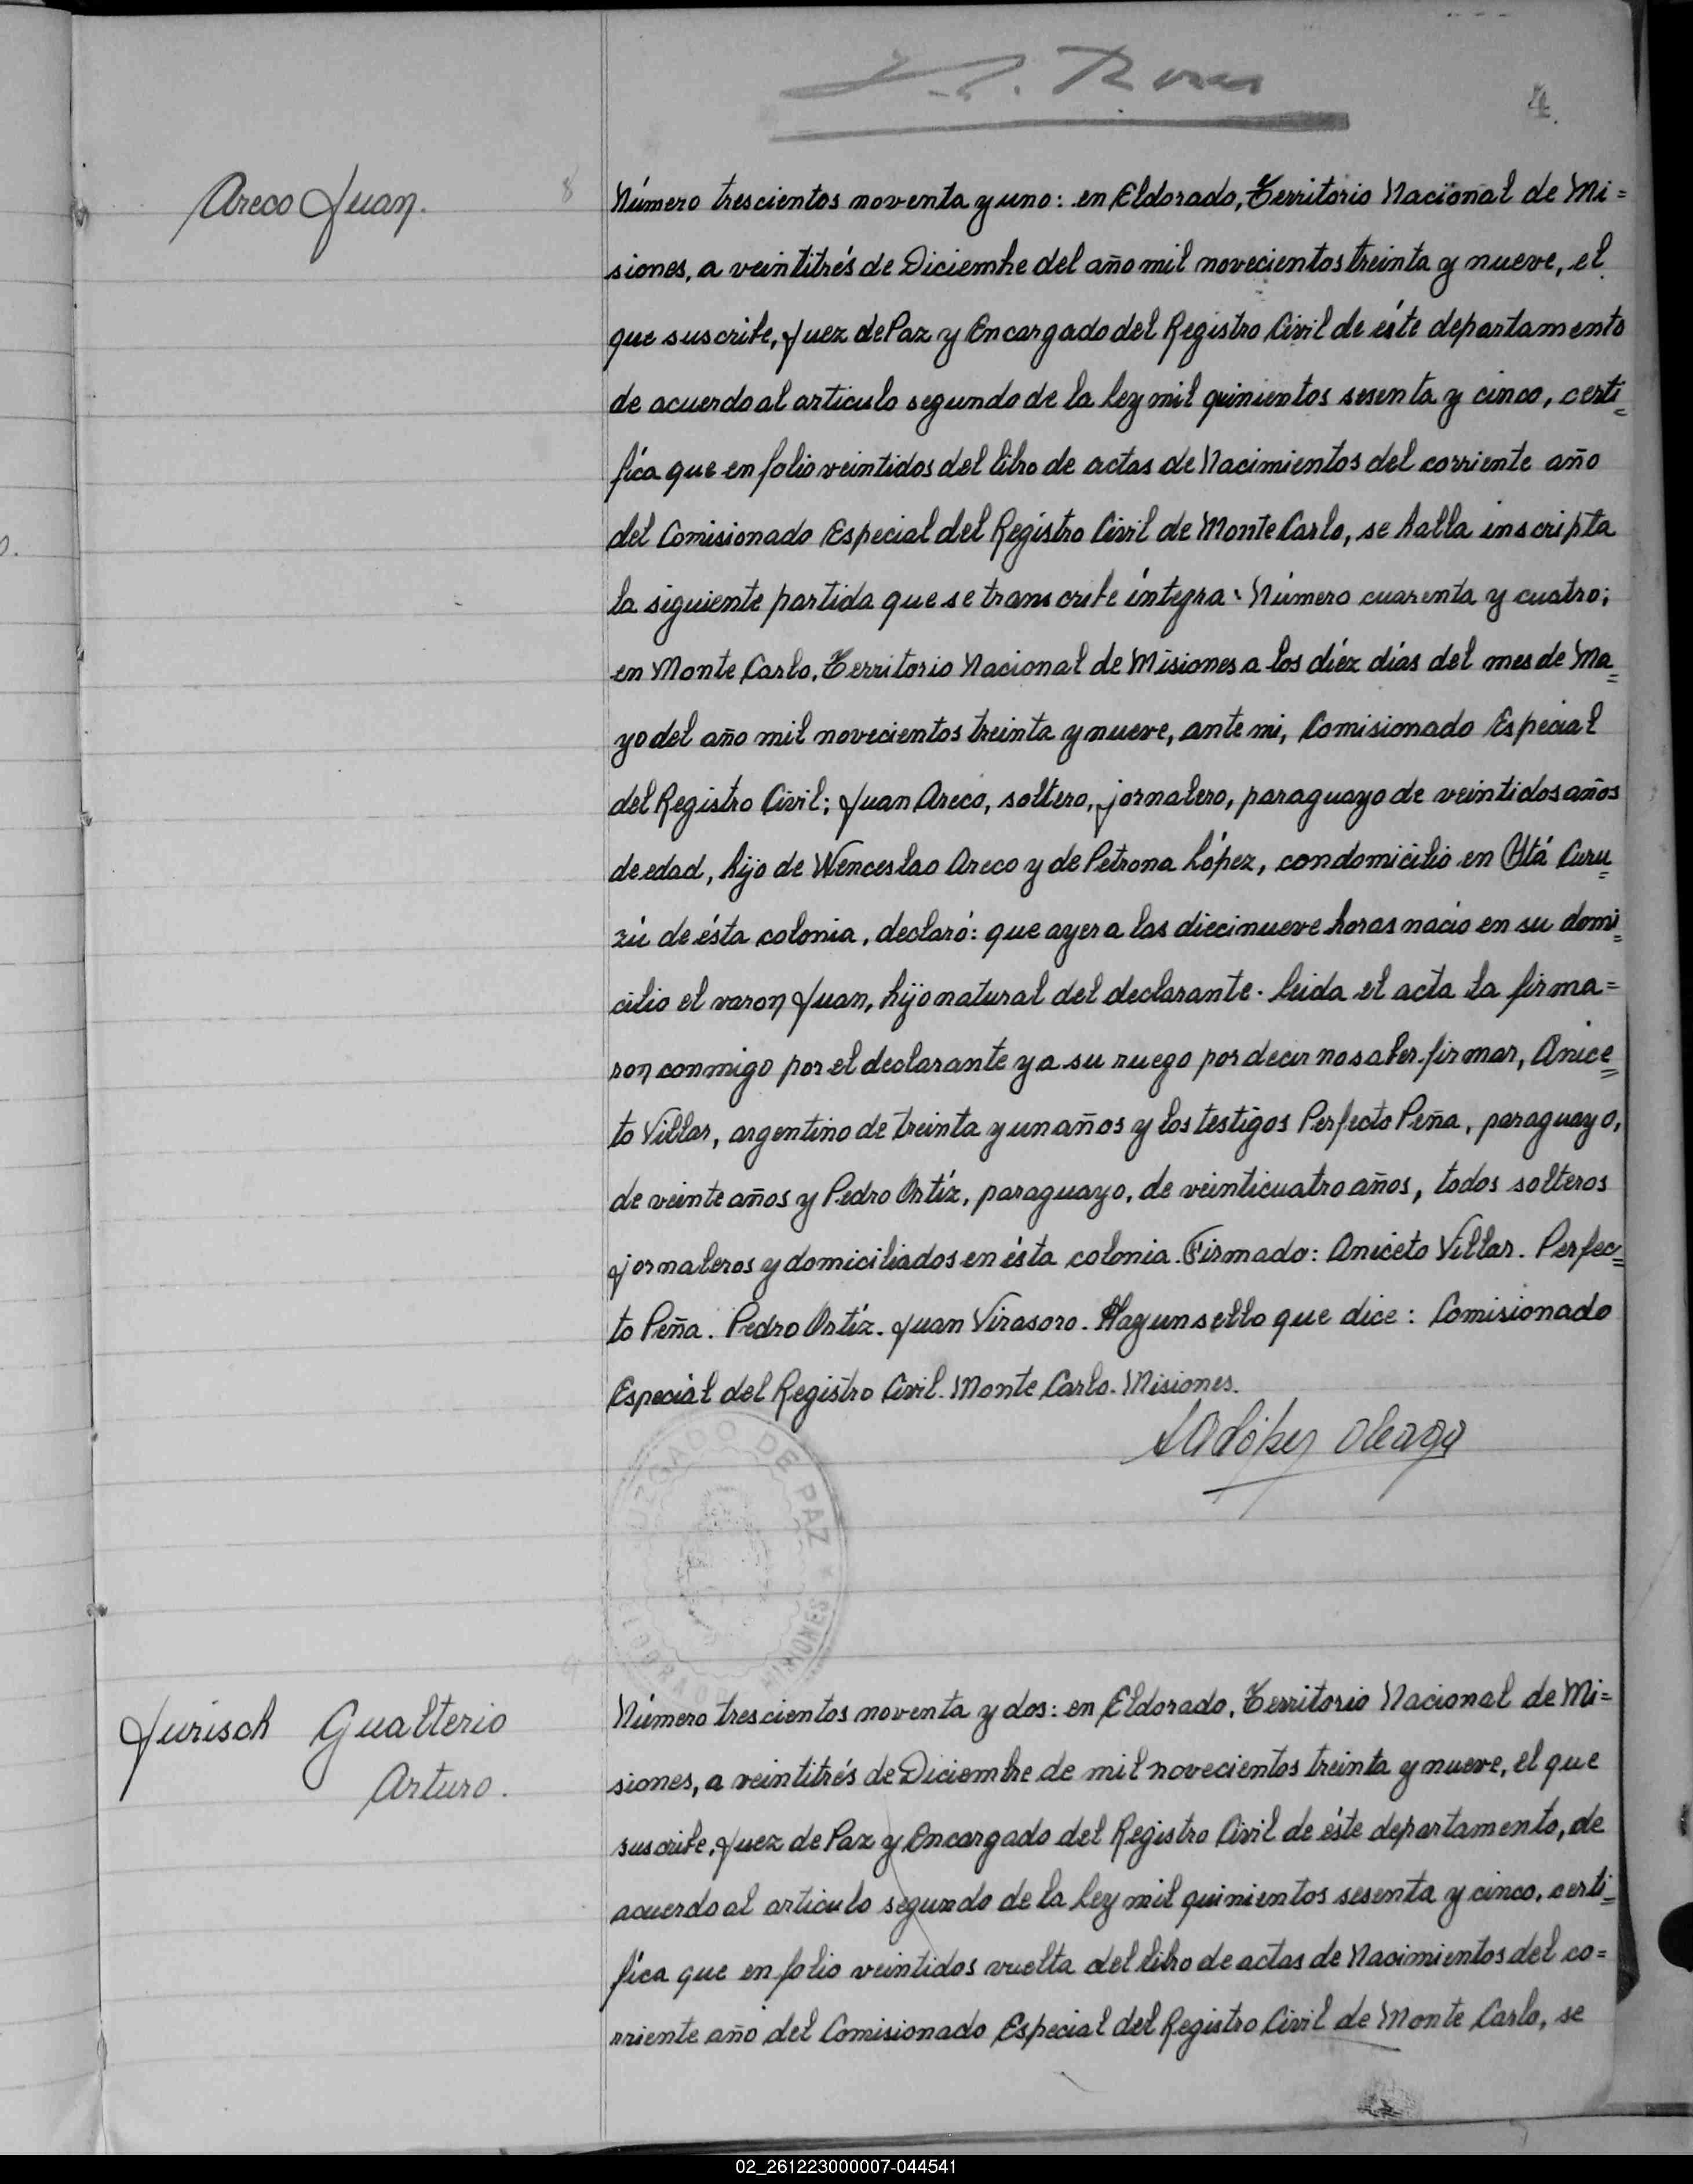 4
Areco Juan.
8
Número trescientos noventa y uno: en Eldorado, Territorio Nacional de Mi=
siones, a veintitrés de Diciembre del año mil novecientos treinta y nueve, el
que suscribe, Juez de Paz y Encargado del Registro Civil de éste departamento
de acuerdo al articulo segundo de la Ley mil quinientos sesenta y cinco, certi=
fica que en folio veintidos del libro de actas de Nacimientos del corriente año
del Comisionado Especial del Registro Civil de Monte Carlo, se halla inscripta
la siguiente partida que se transcribe íntegra: Número cuarenta y cuatro;
en Monte Carlo, Territorio Nacional de Misiones a los diéz días del mes de Ma=
yo del año mil novecientos treinta y nueve, ante mi, Comisionado Especial
del Registro Civil; Juan Areco, soltero, jornalero, paraguayo de veintidos años
de edad, hijo de Wenceslao Areco y de Petrona López, con domicilio en Itá Curu=
zú de ésta colonia, declaró: que ayer a las diecinueve horas nacio en su domi=
cilio el varon Juan, hijo natural del declarante. Leida el acta la firma=
ron conmigo por el declarante y a su ruego por decir no saber firmar, Anice=
to Villar, argentino de treinta y un años y los testigos Perfecto Peña, paraguayo,
de veinte años y Pedro Ortíz, paraguayo, de veinticuatro años, todos solteros
jornaleros y domiciliados en ésta colonia. Firmado: Aniceto Villar. Perfec=
to Peña. Pedro Ortíz. Juan Virasoro. Hay un sello que dice: Comisionado
Especial del Registro Civil. Monte Carlo. Misiones.
López Oleaga
JUZGADO DE PAZ * MISIONES
ELDORADO
Jurisch Gualterio
Arturo.
Número trescientos noventa y dos: en Eldorado, Territorio Nacional de Mi=
siones, a veintitrés de Diciembre de mil novecientos treinta y nueve, el que
suscribe, Juez de Paz y Encargado del Registro Civil de éste departamento, de
acuerdo al articulo segundo de la Ley mil quinientos sesenta y cinco, certi=
fica que en folio veintidos vuelta del libro de actas de Nacimientos del co=
rriente año del Comisionado Especial del Registro Civil de Monte Carlo, se
02_261223000007-044541